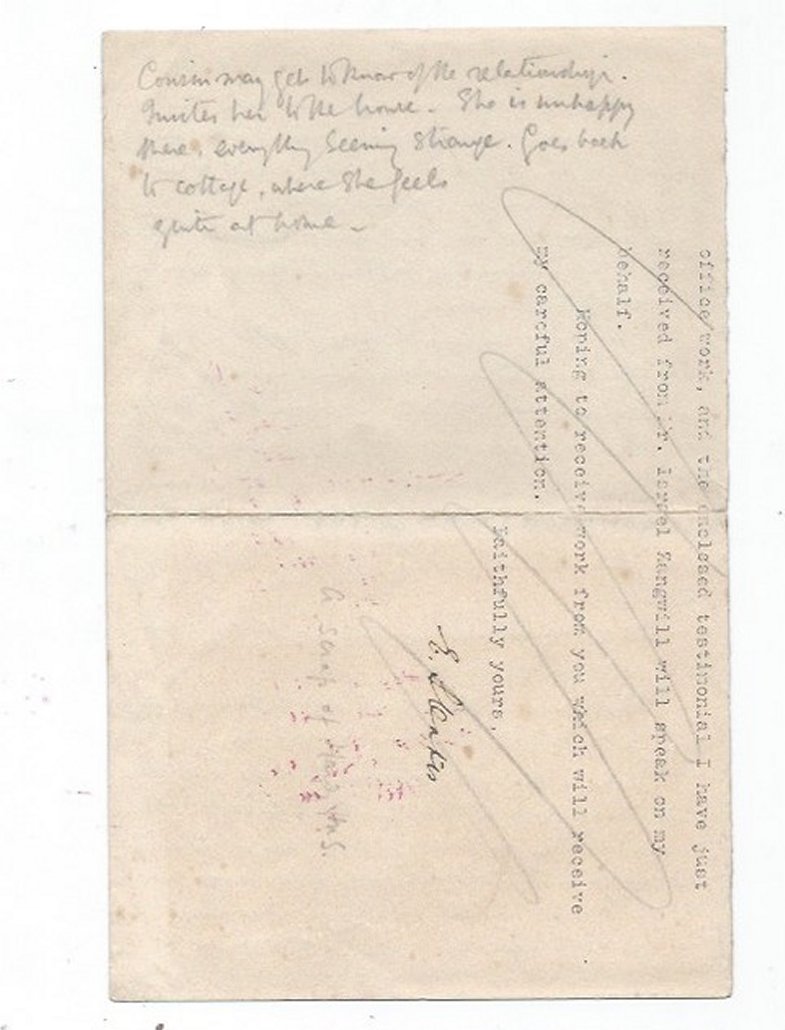 Cousin may get to know of the relationship.
Invites her to the house – She is unhappy
there, everything seeming strange. Goes back
to cottage, where she feels
quite at home –
office work, and the enclosed testimonial I have just
received from Mr. Israel Zangwill will speak on my
behalf.
Hoping to receive work from you which will receive
my careful attention.
Faithfully yours,
E.
A scrap of MS.